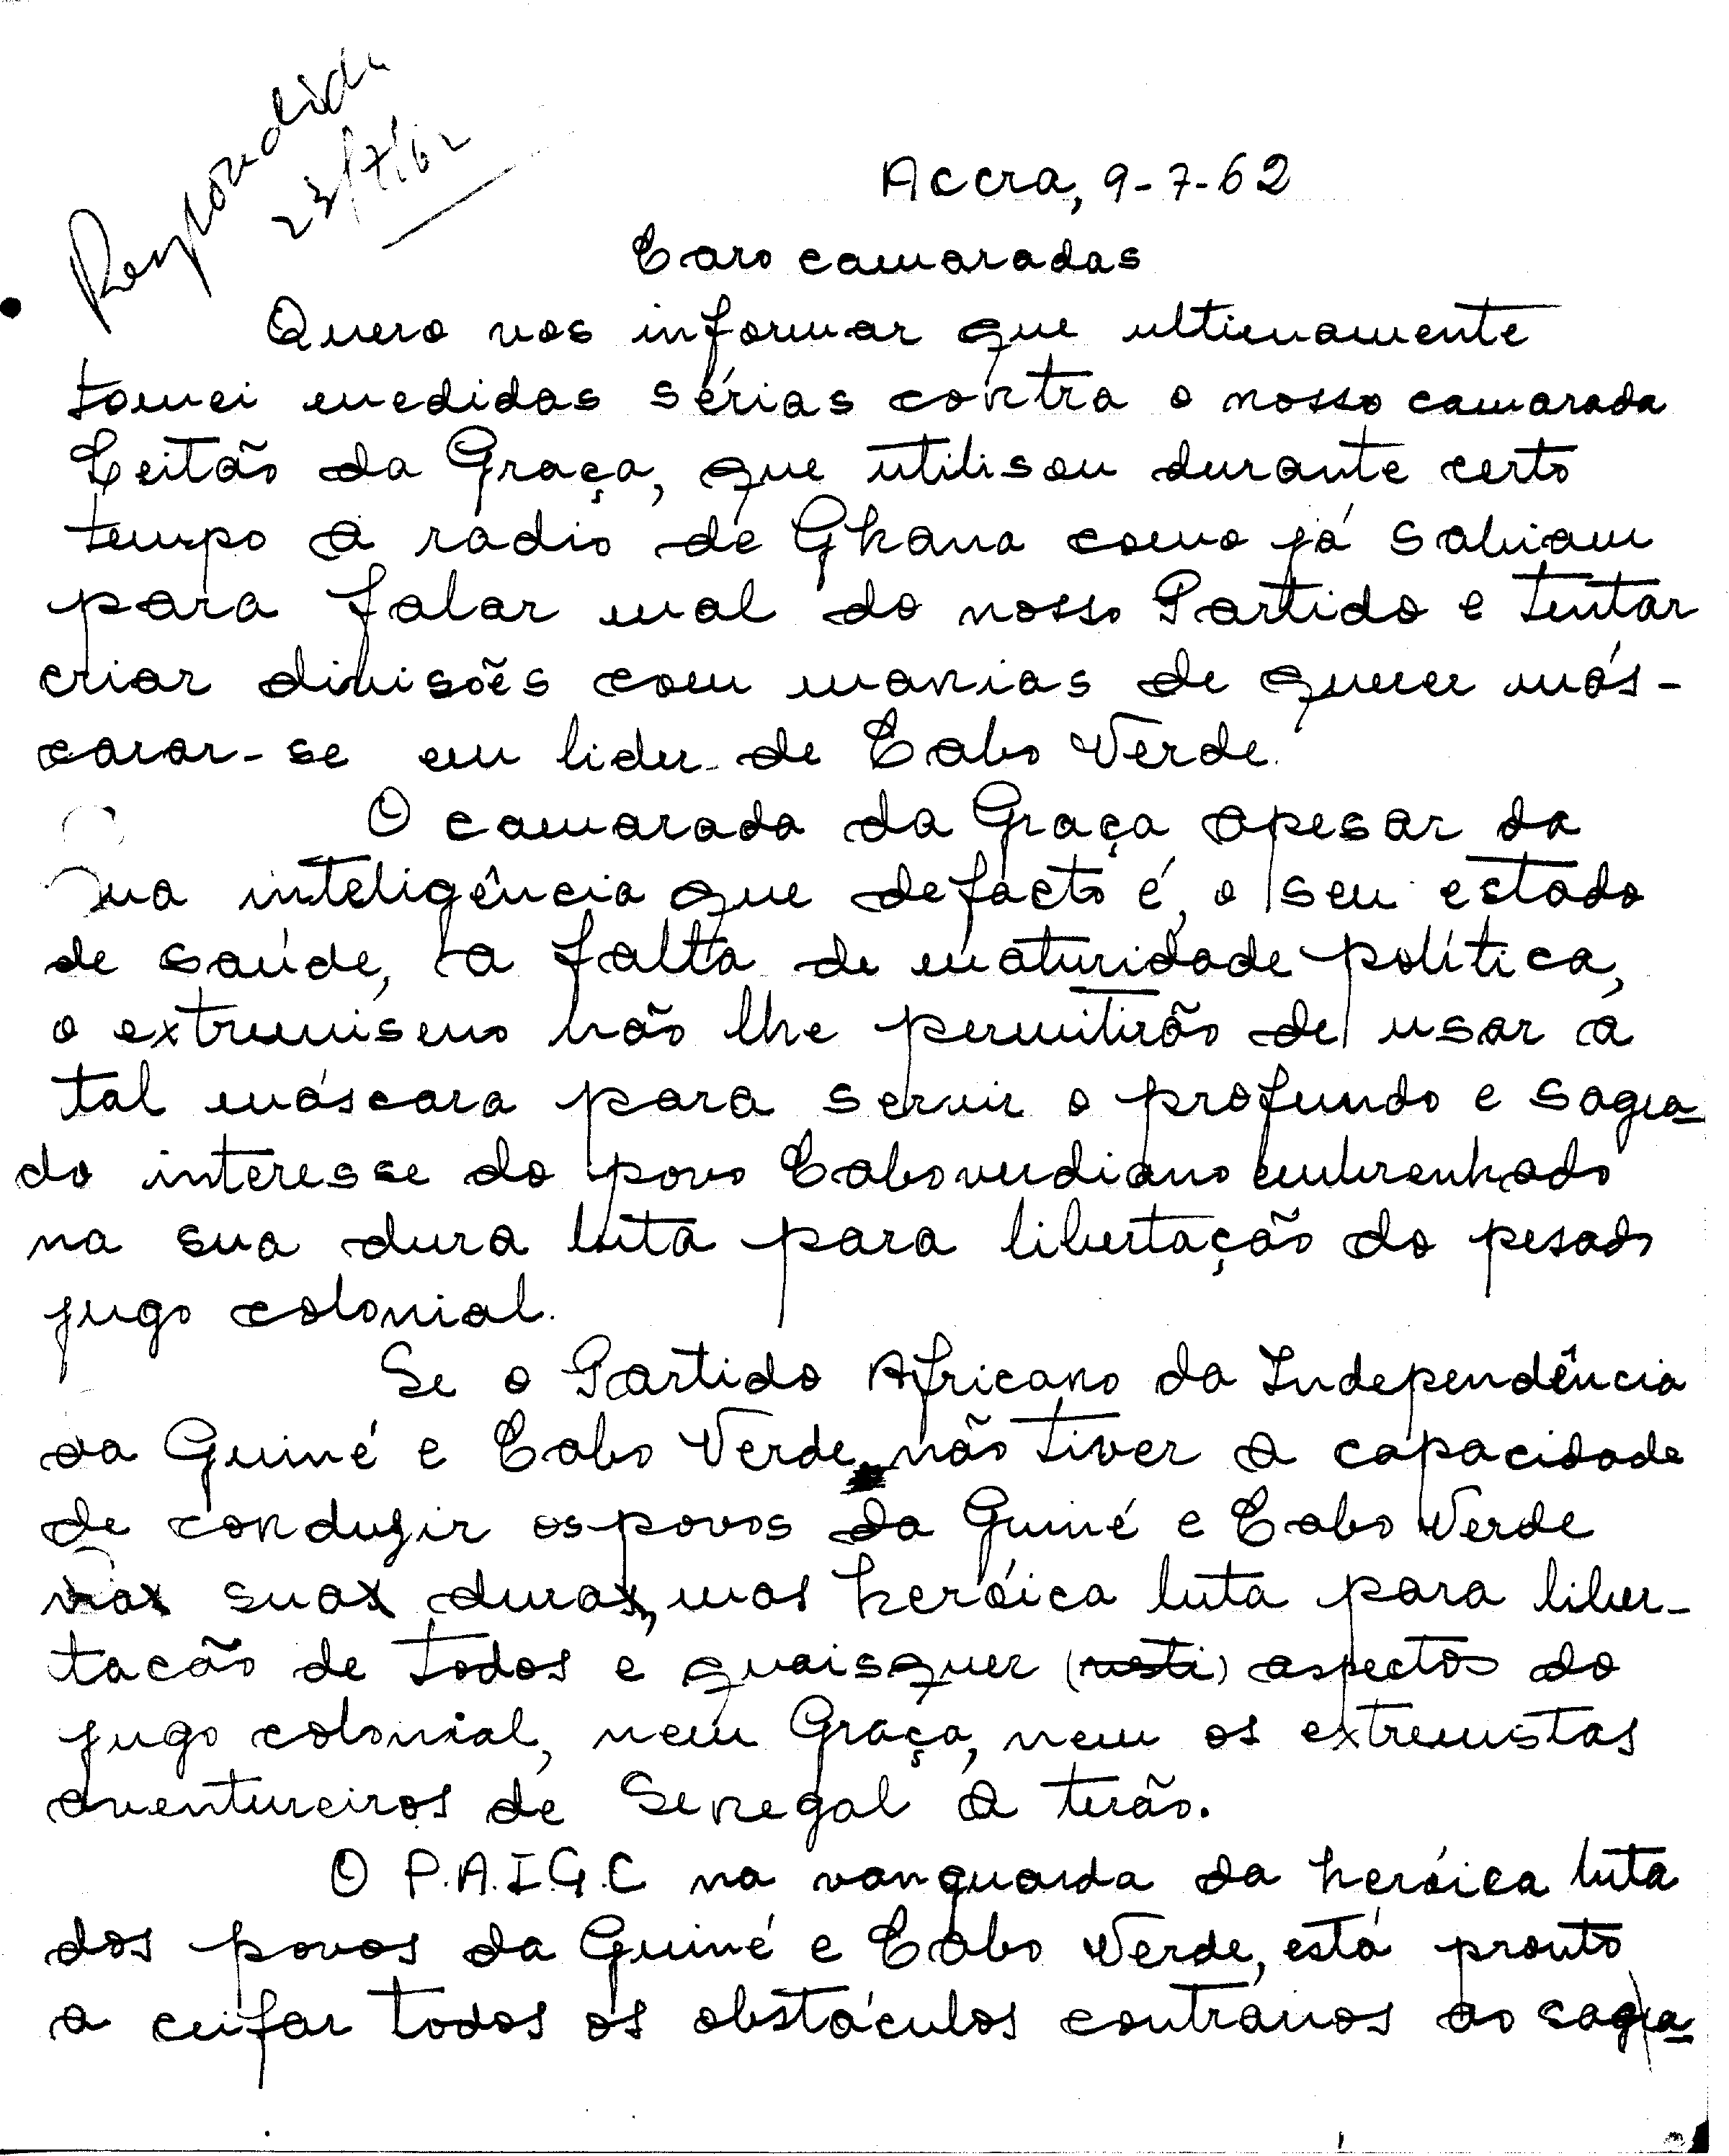 Respondida
23/7/62
Accra, 9-7-62
Caro camaradas
Quero vos informar que ultimamente
tomei medidas sérias contra o nosso camarada
Leitão da Graça, que utilisou durante certo
tempo a radio de Ghana como já sabiam
para falar mal do nosso Partido e tentar
criar divisões com manias de querer más-
carar-se em lider de Cabo Verde.
O camarada da Graça apesar da
sua inteligência que defacto é, o seu estado
de saúde, a falta de maturidade política,
o extremismo não lhe permitirão de usar a
tal máscara para servir o profundo e sagra-
do interesse do povo Caboverdiano embrenhado
na sua dura luta para libertação do pesado
jugo colonial.
Se o Partido Africano da Independência
da Guiné e Cabo Verde não tiver a capacidade
de condusir os povos da Guiné e Cabo Verde
na sua dura, mas heróica luta para liber-
tacão de todos e quaisquer (resti) aspectos do
jugo colonial, nem Graça, nem os extremistas
aventureiros de Senegal a terão.
O P.A.I.G.C na vanguarda da heróica luta
dos povos da Guiné e Cabo Verde, está pronto
a ceifar todos os obstáculos contrarios ao sagra-